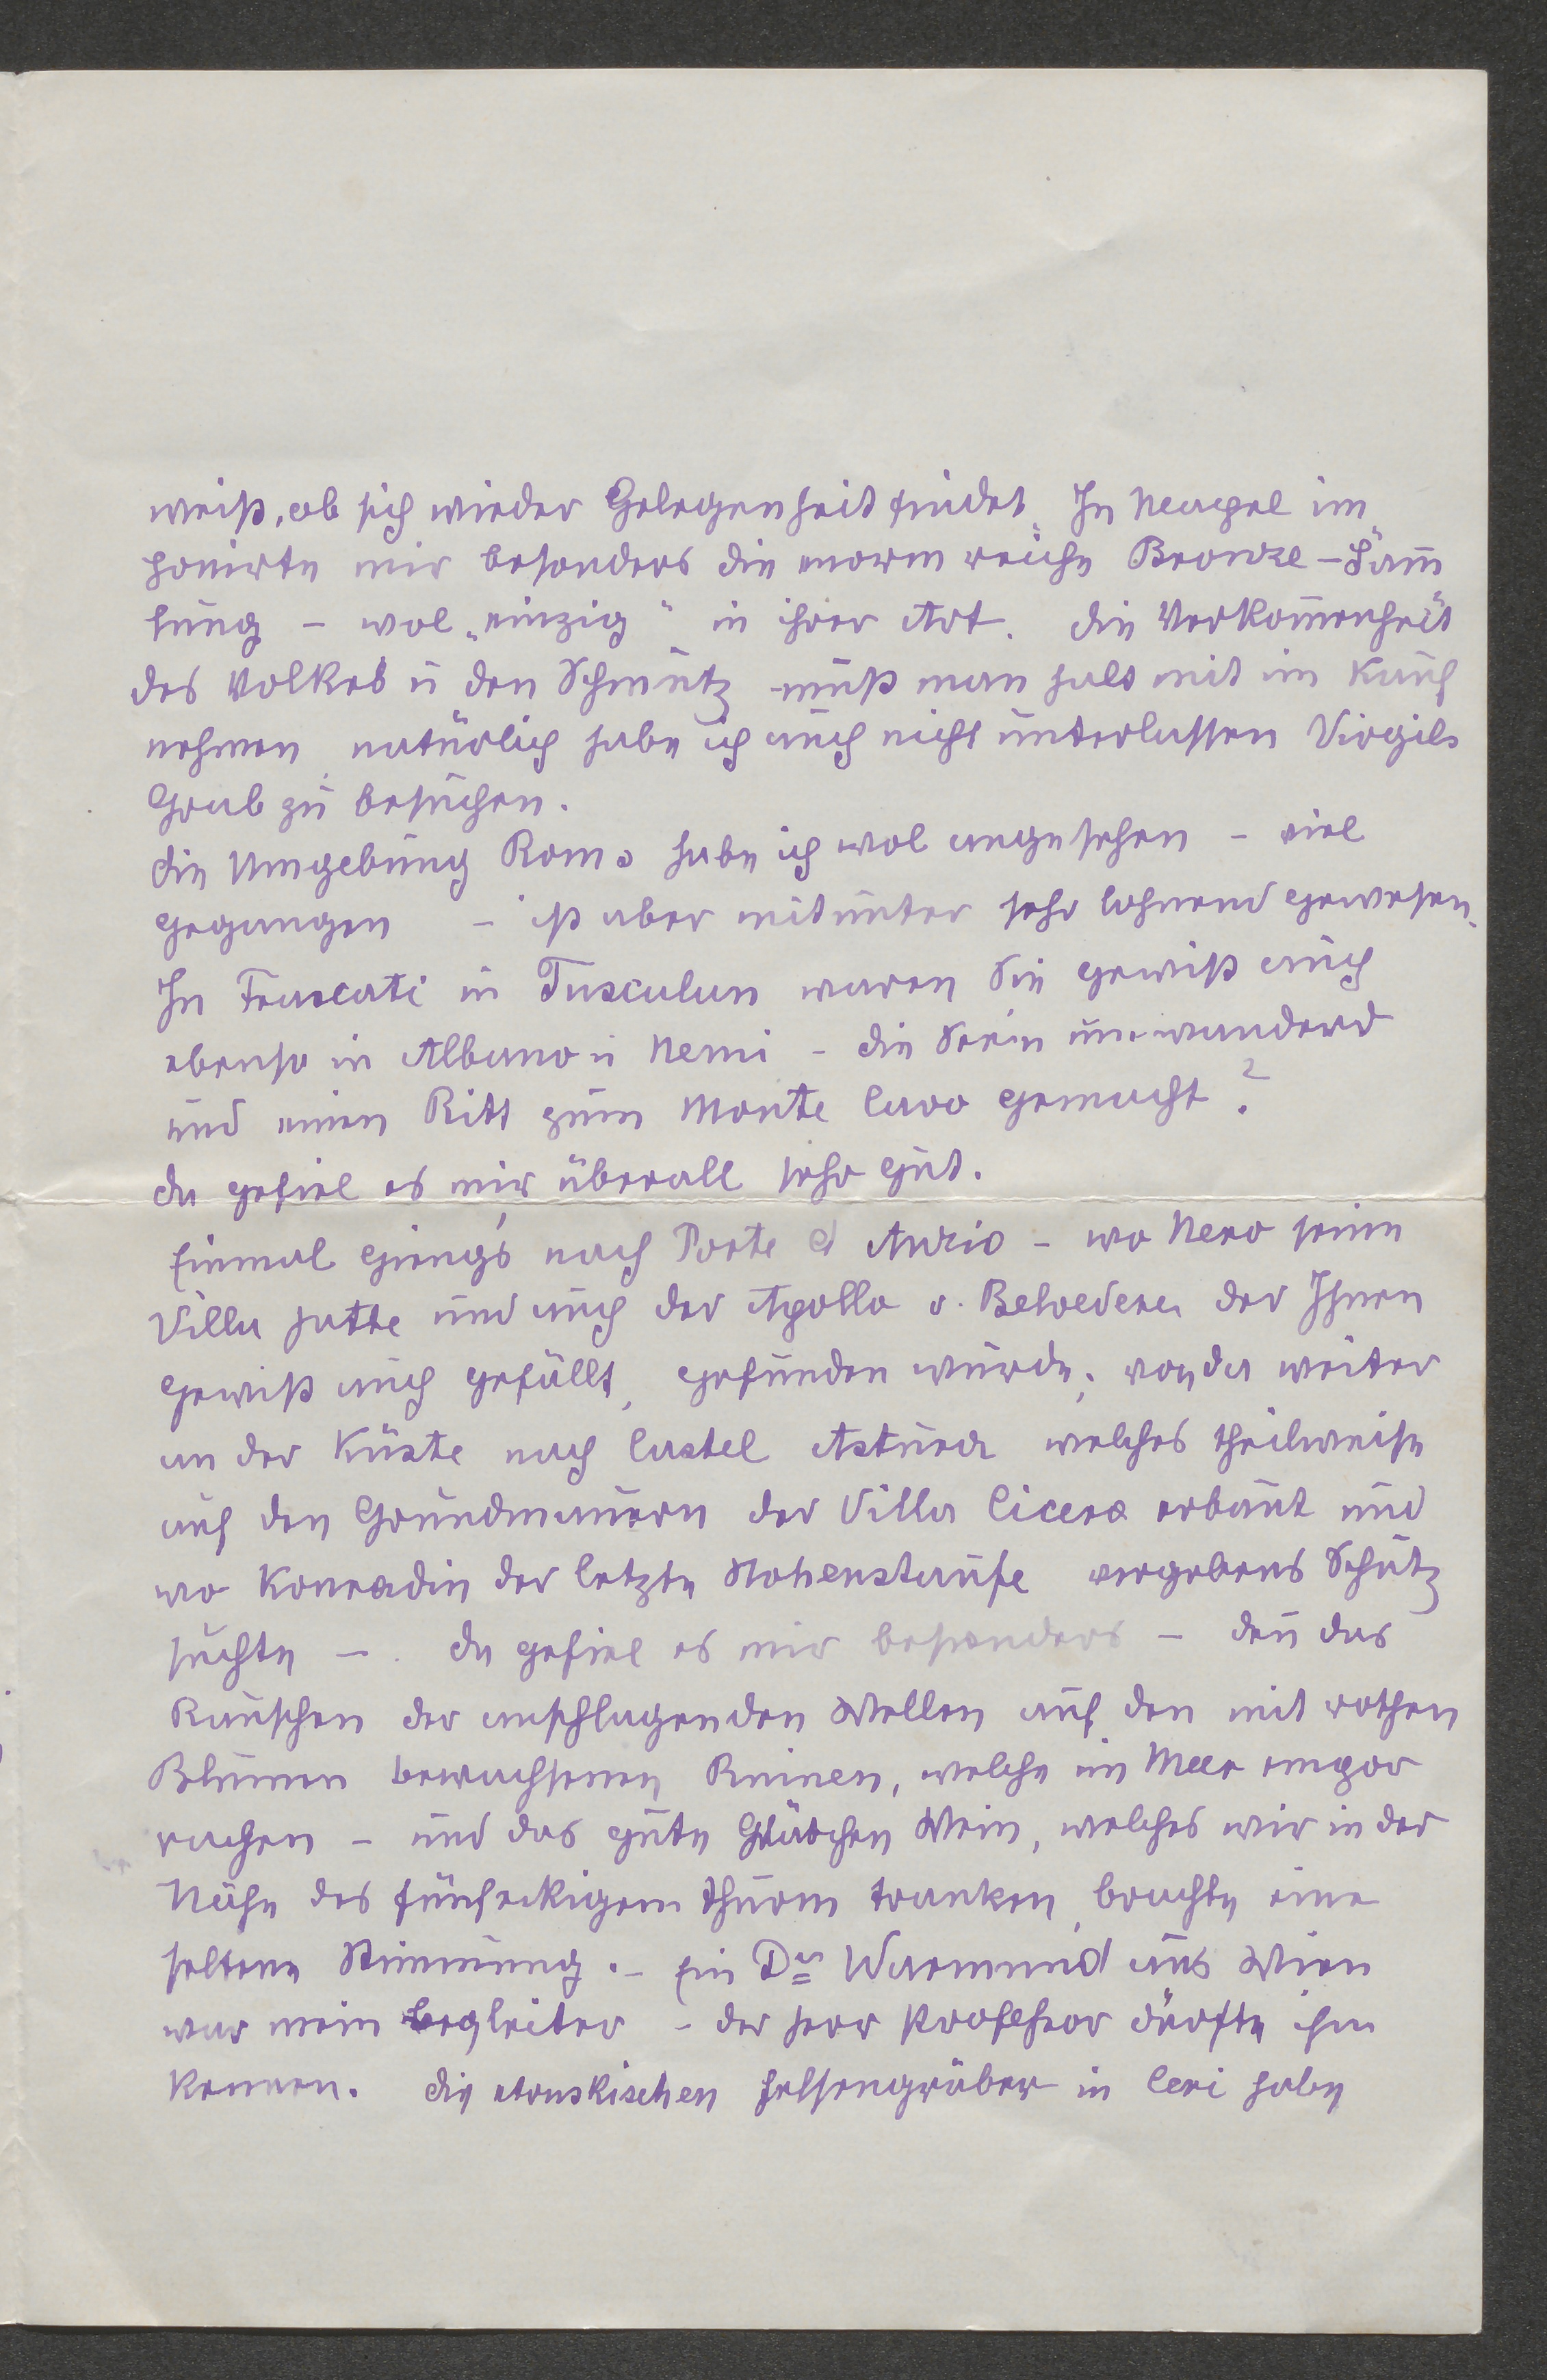 weiß, ob sich wieder Gelegenheit findet. In Neapel im
ponirte mir besonders die enorm reiche Bronze-Sam̅
lung – wol „einzig" in ihrer Art. Die Verkom̅enheit
des Volkes u den Schmutz muß man halt mit im Kauf
nehmen, natürlich habe ich auch nicht unterlassen Virgils
Grab zu besuchen.
Die Umgebung Roms habe ich wol angesehen – viel
gegangen – ist aber mitunter sehr lohnend gewesen.
In Frascati u Tusculun waren Sie gewiß auch
ebenso in Albano u Nemi – die Seen umwandernd
und einen Ritt zum Monte Cavo gemacht?
Da gefiel es mir überall sehr gut.
Einmal gieng's nach Porte d Anzio – wo Nero seine
Villa hatte und auch der Apollo v. Belvedere, der Ihnen
gewiß auch gefällt, gefunden wurde; von da weiter
an der Küste nach Castel Astura welches theilweise
auf den Grundmauern der Villa Cicero erbaut und
wo Konradin der letzte Hohenstaufe vergebens Schutz
suchte –. Da gefiel es mir besonders – den̅ das
Rauschen der anschlagenden Wellen auf den mit rothen
Blumen bewachsenen Ruinen, welche im Meer empor
ragen – und das gute Gläschen Wein, welches wir in der
Nähe des fünfeckigem Thurm tranken, brachte eine
seltene Stimmung. – Ein Dr Warmund aus Wien
war mein Begleiter – der Herr Professor dürfte ihn
kennen. Die etruskischen Felsengräber in Ceri habe